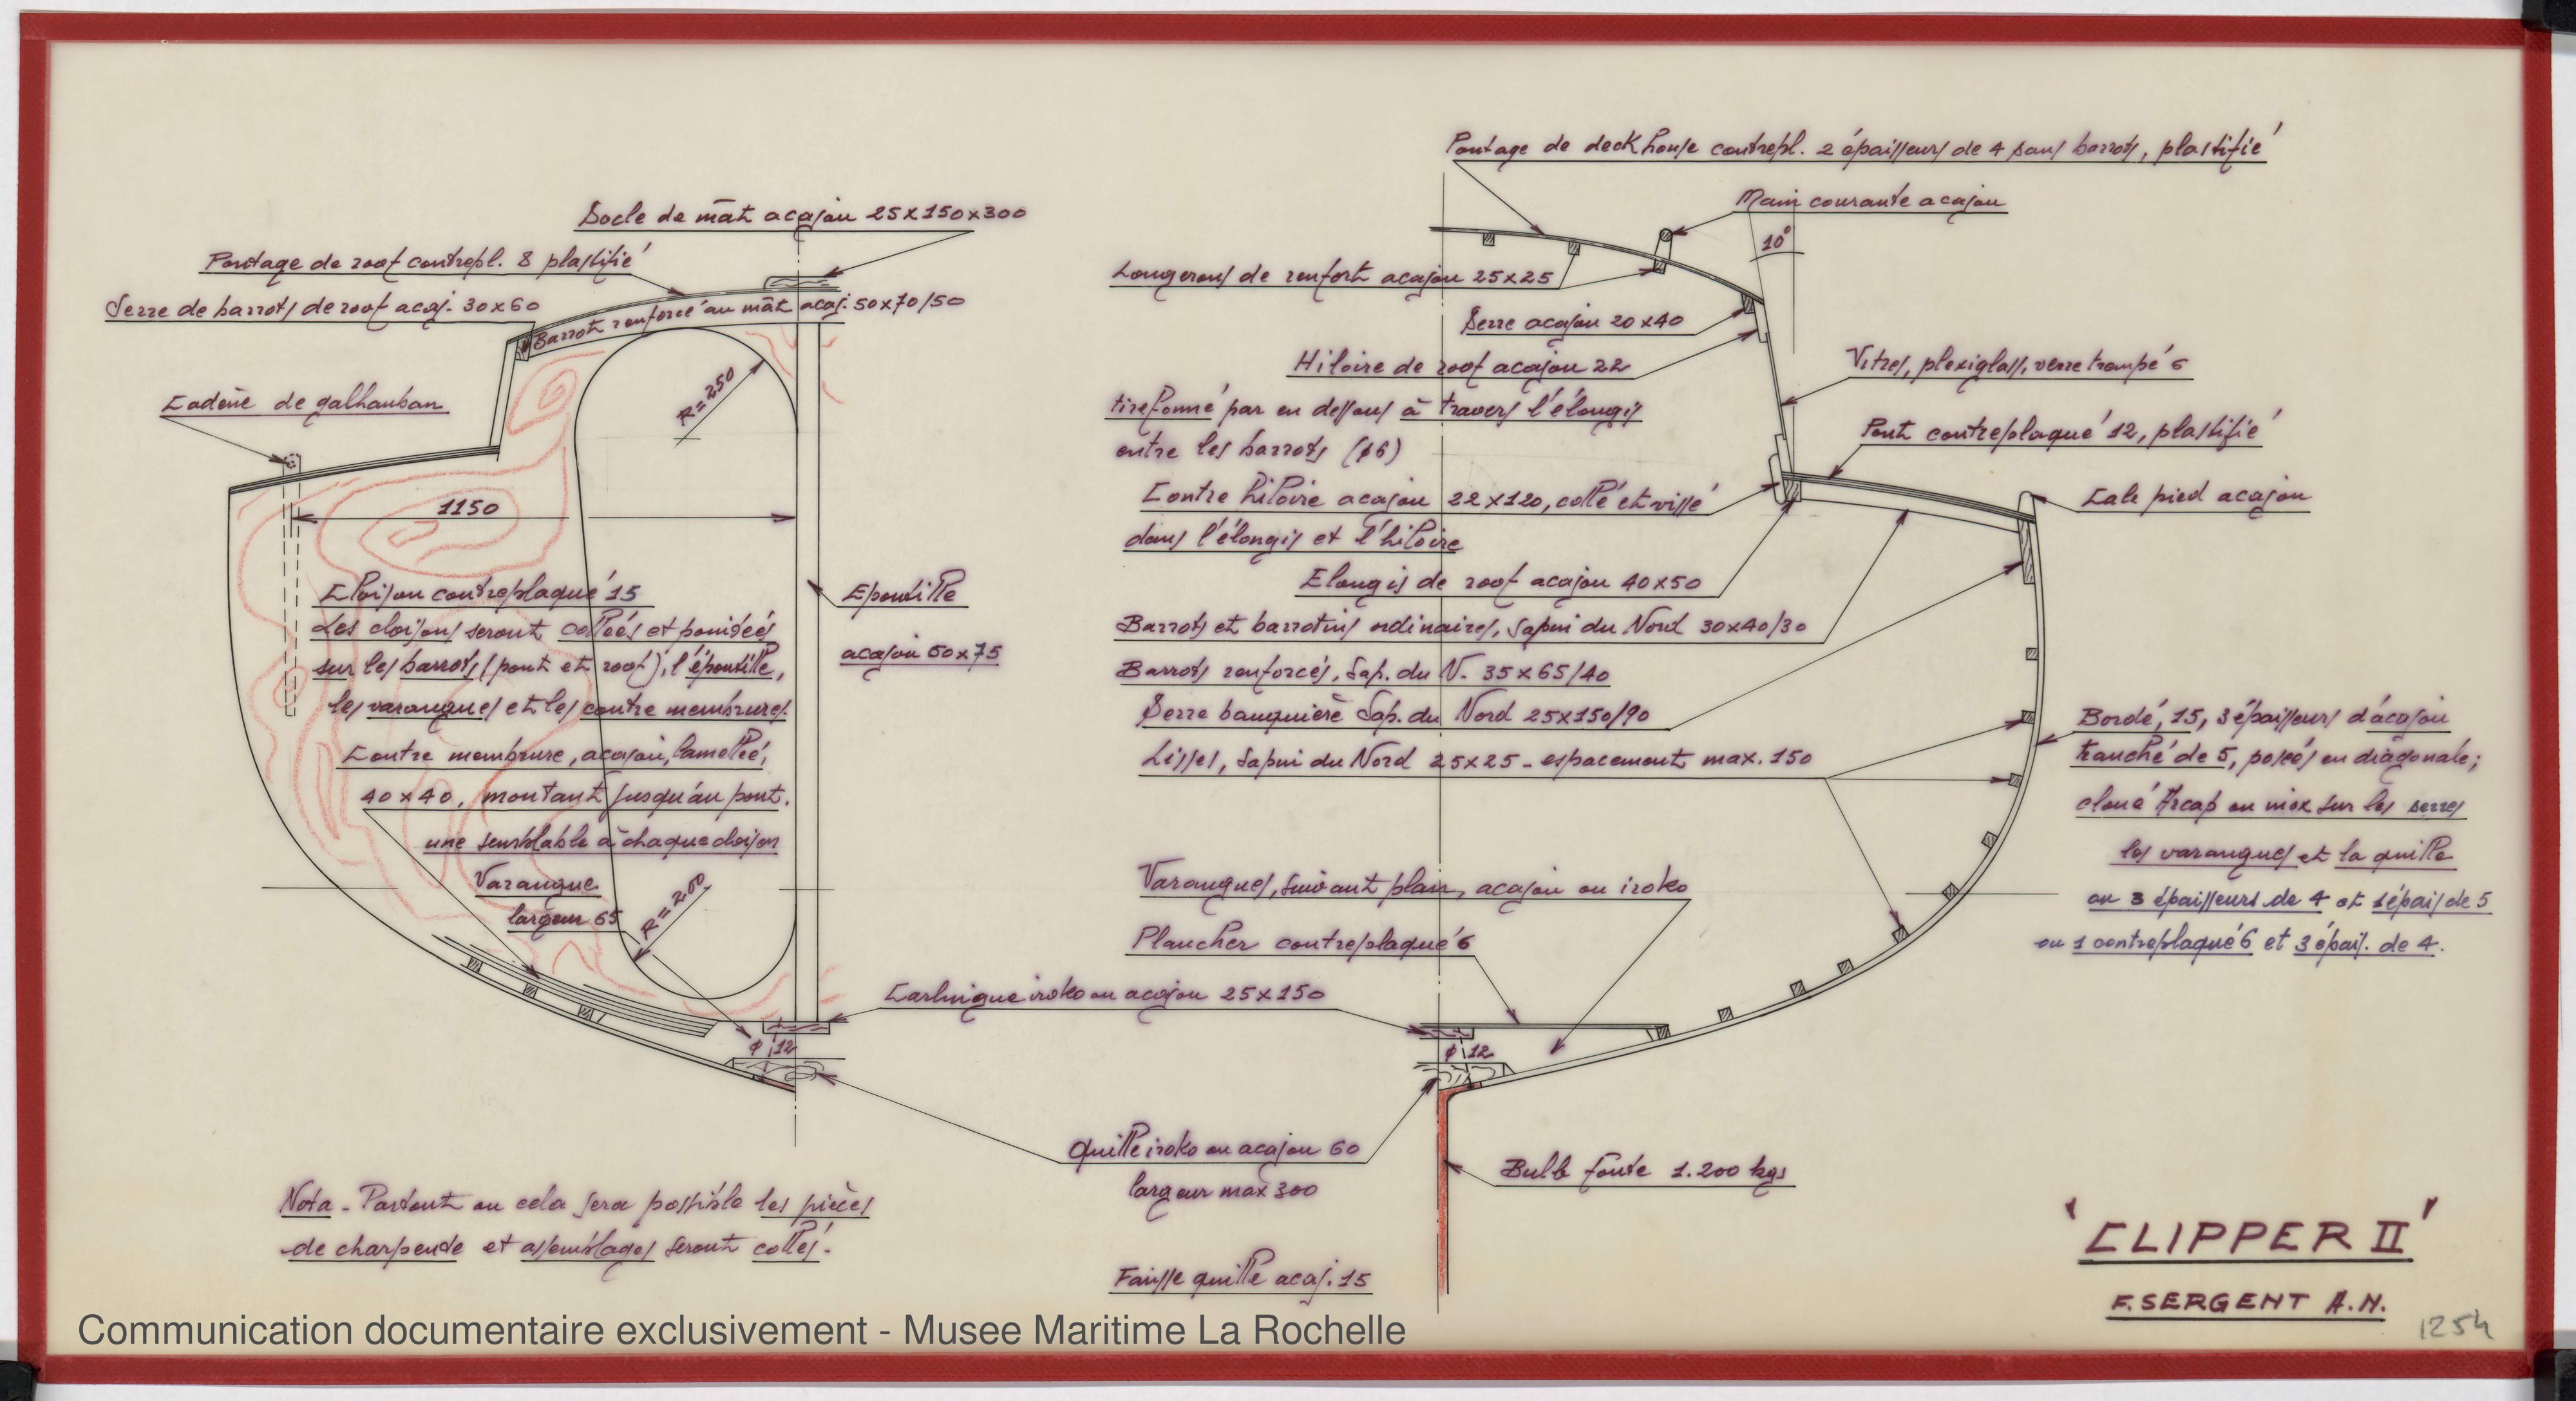 Socle de mât acajou 25x150x300
Pontage de roof contrepl. 8 plastifié
Serre de barrots de roof acaj. 30x60
Barrot renforcé au mât acaj. 50x70/50
Cadène de galhauban
R=250
1150
Cloison contreplaqué 15
Les cloisons seront collées et pointées
sur les barrots (pont et roof), l'épontille,
les varangues et les contre membrures.
Contre membrure, acajou, lamellé,
40x40, montant jusqu'au pont.
une semblable à chaque cloison
Varangue
largeur 65
R=200
Epontille
acajou 50x75
ϕ 12
Carlingue iroko ou acajou 25x150
Quille iroko ou acajou 60
largeur max 300
Fausse quille acaj. 15
Nota - Partout ou cela sera possible les pièces
de charpente et assemblages seront collés.
Pontage de deck house contrepl. 2 épaisseurs de 4 sans barrots, plastifié
Main courante acajou
10°
Longerons de renfort acajou 25x25
Serre acajou 20x40
Hiloire de roof acajou 22
tirefonné par en dessous à travers l'élongis
entre les barrots (ϕ6)
Vitres, plexiglass, verre trempé 6
Pont contreplaqué 12, plastifié
Contre hiloire acajou 22x120, collé et vissé
dans l'élongis et l'hiloire
Cale pied acajou
Elongis de roof acajou 40x50
Barrots et barrotins ordinaires, Sapin du Nord 30x40/30
Barrots renforcés, Sap. du N. 35x65/40
Serre bauquière Sap. du Nord 25x150/90
Lisses, Sapin du Nord 25x25 - espacement max. 150
Bordé, 15, 3 épaisseurs d'acajou
tranché de 5, posés en diagonale;
cloué Arcap ou inox sur les serres
les varangues et la quille
ou 3 épaisseurs de 4 et 1 épais de 5
ou 1 contreplaqué 6 et 3 épais. de 4.
Varangues, suivant plan, acajou ou iroko
Plancher contreplaqué 6
ϕ 12
Bulb fonte 1.200 kgs
'CLIPPER II'
F. SERGENT A.N.
1254
Communication documentaire exclusivement - Musee Maritime La Rochelle